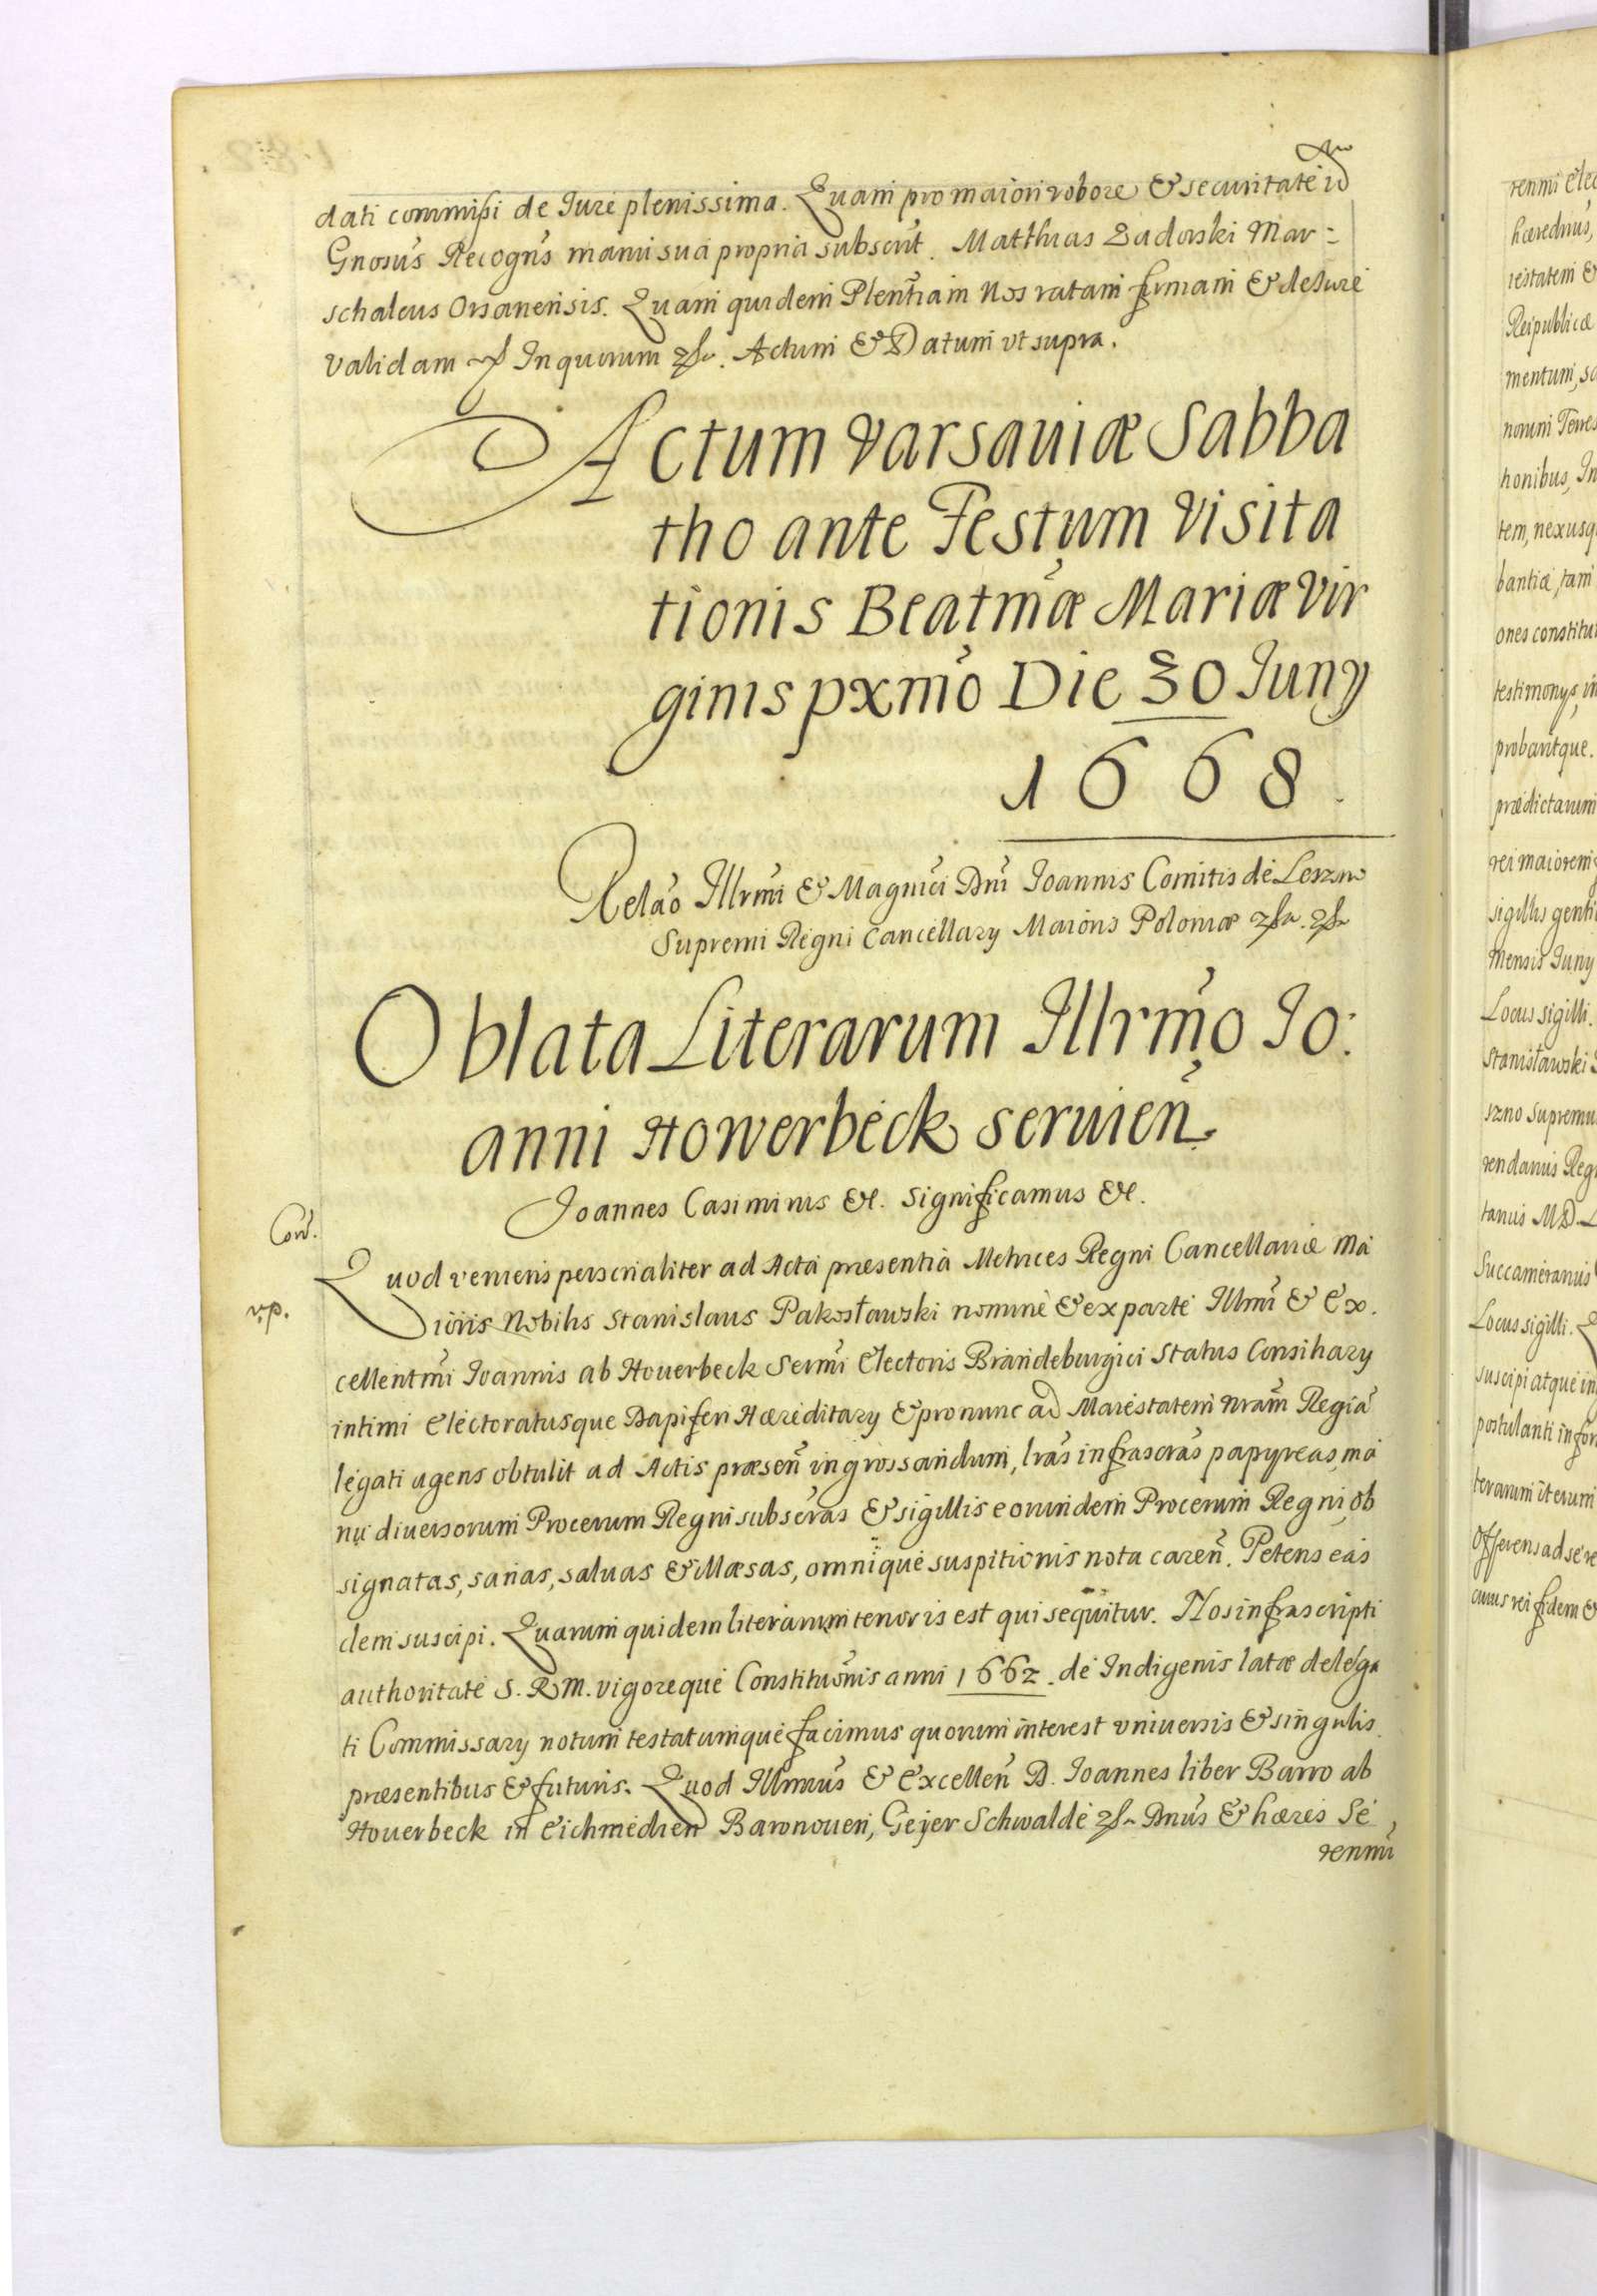 dati commissi de Iure plenissima. Quam pro maiori robore & securitate id
Gnosus Recogns manu sua propria subscrit. Matthias Zadorski Mar=
schalcus Orsanensis. Quam quidem Plentiam Nos ratam firmam & de Iure
validam In quorum Actum & Datum vt supra.
Actum Varsauiæ Sabba
tho ante Festum Visita
tionis Beatmæ Mariæ Vir
ginis pxmo Die 30 Iuny
1668.
Relao Illrmi & Magnici Dni Ioannis Comitis de Leszno
Supremi Regni Cancellary Maioris Poloniæ
Oblata Literarum Illrmo Io:
anni Howerbeck seruien.
Ioannes Casimirus &c. Significamus &c.
Cord.
Quod veniens personaliter ad Acta præsentia Metrices Regni Cancellariæ Ma
ioris Nobilis Stanislaus Pakosławski nomine & ex parte Illmi & Ex.
vp.
cellentmi Ioannis ab Houerbeck Sermi Electoris Brandeburgici Status Consiliary
intimi Electoratusque Dapiferi Hæreditary & pro nunc ad Maiestatem nram Regia
legati agens obtulit ad Actis præsen ingrossandum, lras infrascras papyreas, ma
nu diuersorum Procerum Regni subscras & sigillis eorumdem Procerum Regni, ob
signatas, sanas, saluas & illæsas, omnique suspitionis nota caren. Petens eas
dem suscipi. Quarum quidem literarum tenor is est qui sequitur. Nos infrascripti
authoritate S. R. M. vigoreque Constitutionis anni 1662. de Indigenis latæ delega
ti Commissary notum testatumque facimus quorum interest vniuersis & singulis
præsentibus & futuris. Quod Illrmus & Excellen D. Ioannes liber Barro ab
Houerbeck in Eichmedien Baronouen, Geyer Schwalde Dnus & hæres Se
renmi
renmi Elec
hæredius,
iestatem &
Reipublicæ
mentum, sa
norum Terres
tionibus, In
tem, nexusq
bantiæ, tam
ones constitu
testimonys, in
probantque.
prædictarum
rei maiorem
sigillis genti
mensis Iuny
Locus sigilli.
Stanisławski
szno Supremu
rendarius Reg
tanus M D L
Succamerarius
Locus sigilli. Q
suscipi atque in
postulanti in for
terarum iterum
Offerens ad se re
cuius rei fidem &